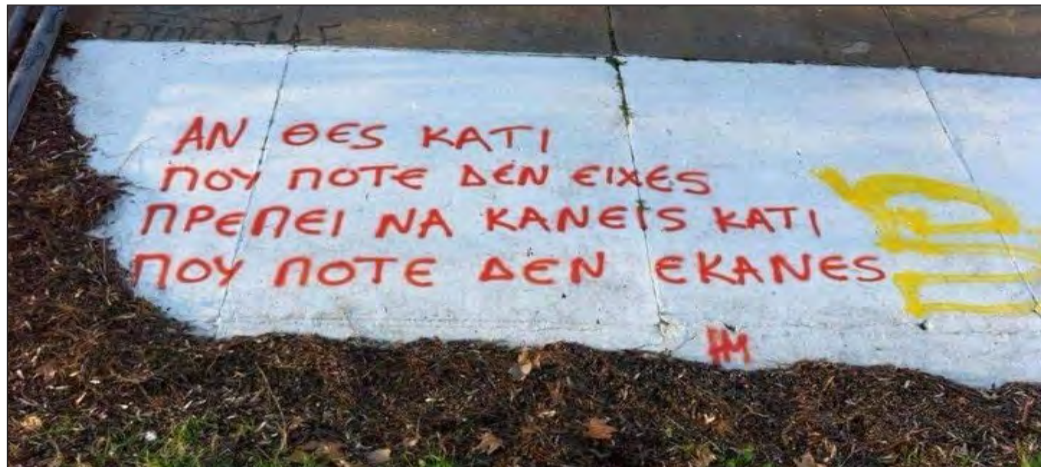 ΑΝ ΘΕS ΚΑΤΙ
ΠΟΥ ΠΟΤΕ ΔΕΝ ΕΙΧΕS
ΠΡΕΠΕΙ ΝΑ ΚΑΝΕΙS ΚΑΤΙ
ΠΟΥ ΠΟΤΕ ΔΕΝ ΕΚΑΝΕS
ΗΜ